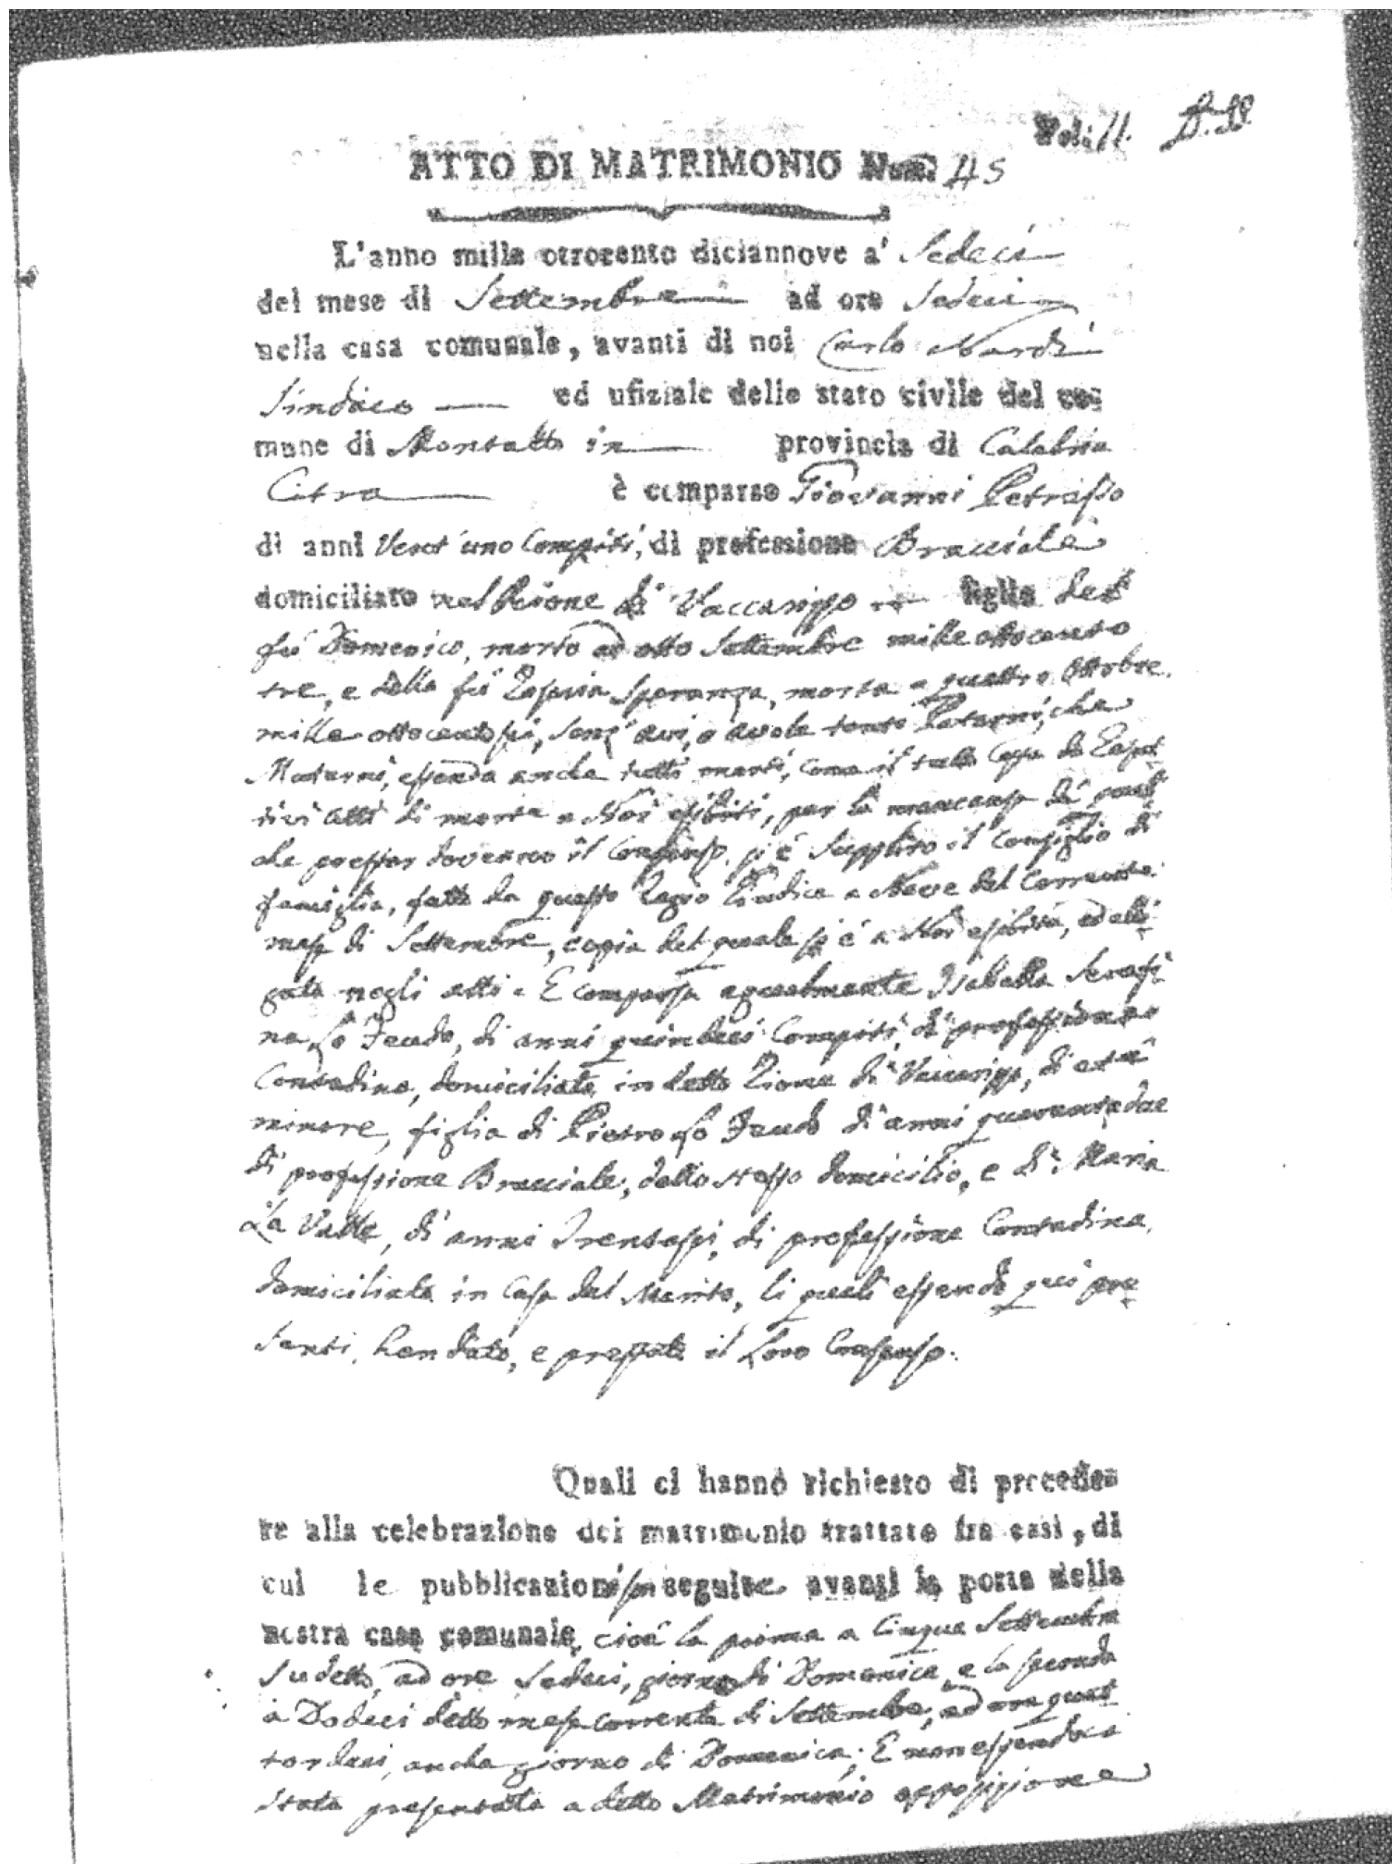 Fol: 11.
ATTO DI MATRIMONIO Num: 45
L'anno mille ottocento diciannove a' Sedeci
del mese di Settembre ad ore Sedeci
nella casa comunale, avanti di noi Carlo Nardi
Sindaco ed ufiziale dello stato civile del co=
mune di Montalto in provincia di Calabria
Citra è comparso Giovanni Petrasso
di anni Vent'uno Compiti, di professione Bracciale
domiciliato nel Rione di Vaccarizzo figlio del
fù Domenico, morto ad otto Settembre mille ottocento
tre, e della fù Speranza, morta a quattro Ottobre
mille ottocento sei, senz'avi, o avole tanto Paterni, che
Materni, essendo anche tutti morti, come il tutto Costa da Rispet
tivi atti di morte a Noi esibiti, per la mancanza de' quali
che prestar dovevano il Consenso, si è supplito il Consiglio di
famiglia, fatto da questo Regio Giudice a Nove del Corrente
mese di Settembre, copia del quale si è a Noi esibita, ed alli=
gata negli atti. E comparsa egualmente Isabella Serafi
na Lo Feudo, di anni quindeci Compiti, di professione
Contadina, domiciliata in detto Rione di Vaccarizzo, di età
minore, figlia di Pietro Lo Feudo di anni quarantadue
di professione Bracciale, dello stesso domicilio, e di Maria
La Valle, di anni Trentasei, di professione Contadina,
domiciliata in Casa del Marito, li quali essendo quì pre=
senti, han dato, e prestato il Loro Consenso.
Quali ci hanno richiesto di procede=
re alla celebrazione del matrimonio trattato fra essi, di
cui le pubblicazioni son seguite avanti la porta della
nostra casa comunale, cioè la prima a Cinque Settembre
sudetto, ad ore Sedeci, giorno di Domenica, e la seconda
a Dodeci detto mese corrente di Settembre, ad ore quat
tordeci, anche giorno di Domenica; E non essendoci
stata presentata a detto Matrimonio opposizione